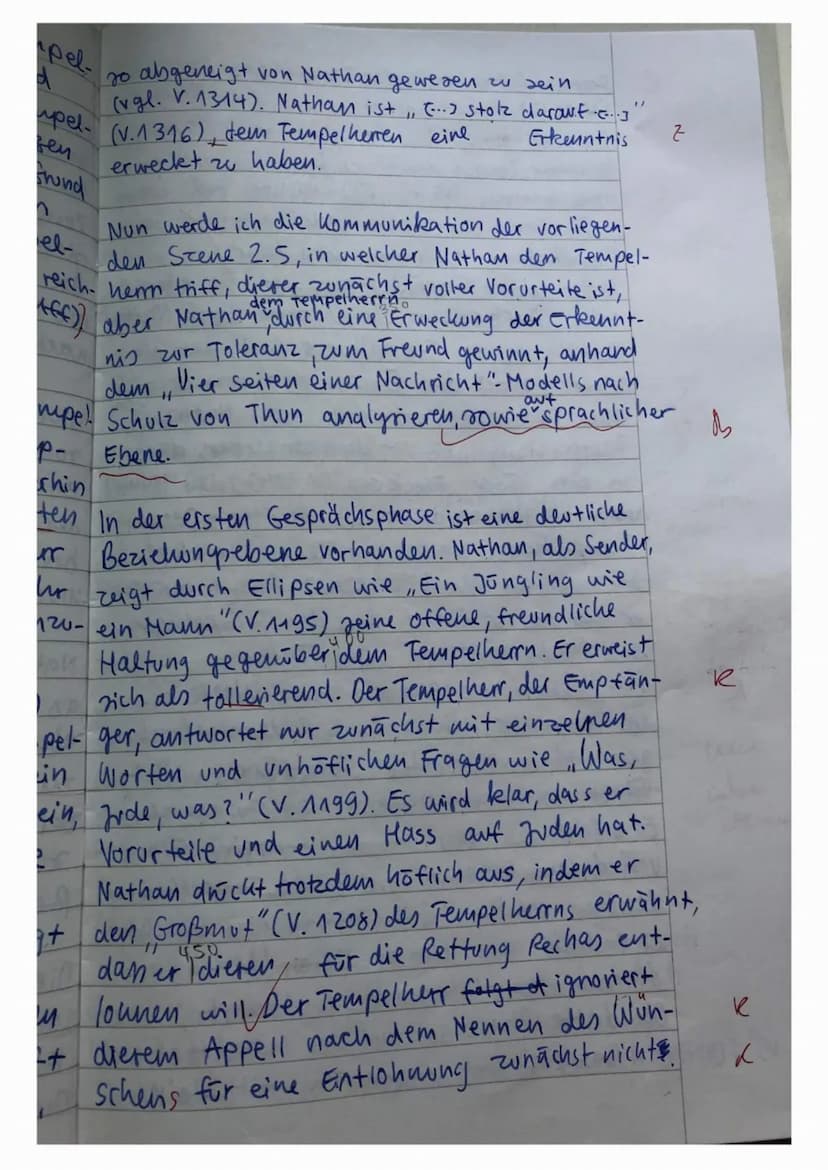 so abgeneigt von Nathan gewesen zu sein
(vgl. V.1314). Nathan ist „[...] stolz darauf [...]"
(V.1316), dem Tempelherren eine Erkenntnis
erweckt zu haben.
Nun werde ich die Kommunikation der vorliegen-
den Szene 2.5, in welcher Nathan den Tempel-
herrn triff, dieser zunächst voller Vorurteile ist,
dem Tempelherrn
aber Nathan, durch eine Erweckung der Erkennt-
350
nis zur Toleranz, zum Freund gewinnt, anhand
dem „Vier seiten einer Nachricht"-Modells nach
auf
Schulz von Thun analysieren, sowie sprachlicher
Ebene.
In der ersten Gesprächsphase ist eine deutliche
Beziehungsebene vorhanden. Nathan, als Sender,
zeigt durch Ellipsen wie „Ein Jüngling wie
ein Mann" (V.1195) seine offene, freundliche
400
Haltung gegenüber dem Tempelherrn. Er erweist
sich als tollerierend. Der Tempelherr, der Empfän-
ger, antwortet nur zunächst mit einzelnen
Worten und unhöflichen Fragen wie „Was,
Jude, was?" (V.1199). Es wird klar, dass er
Vorurteile und einen Hass auf Juden hat.
Nathan drückt trotzdem höflich aus, indem er
den „Großmut" (V. 1208) des Tempelherrns erwähnt,
450
dass er diesen, für die Rettung Rechas ent-
lohnen will. Der Tempelherr ignoriert
diesem Appell nach dem Nennen des Wün-
schens für eine Entlohnung zunächst nicht.
pel-
d
mpel-
ten
n
el-
reich-
mpel
p-
ten
rr
hr
nzu-
pel-
ein
ein,
R
R